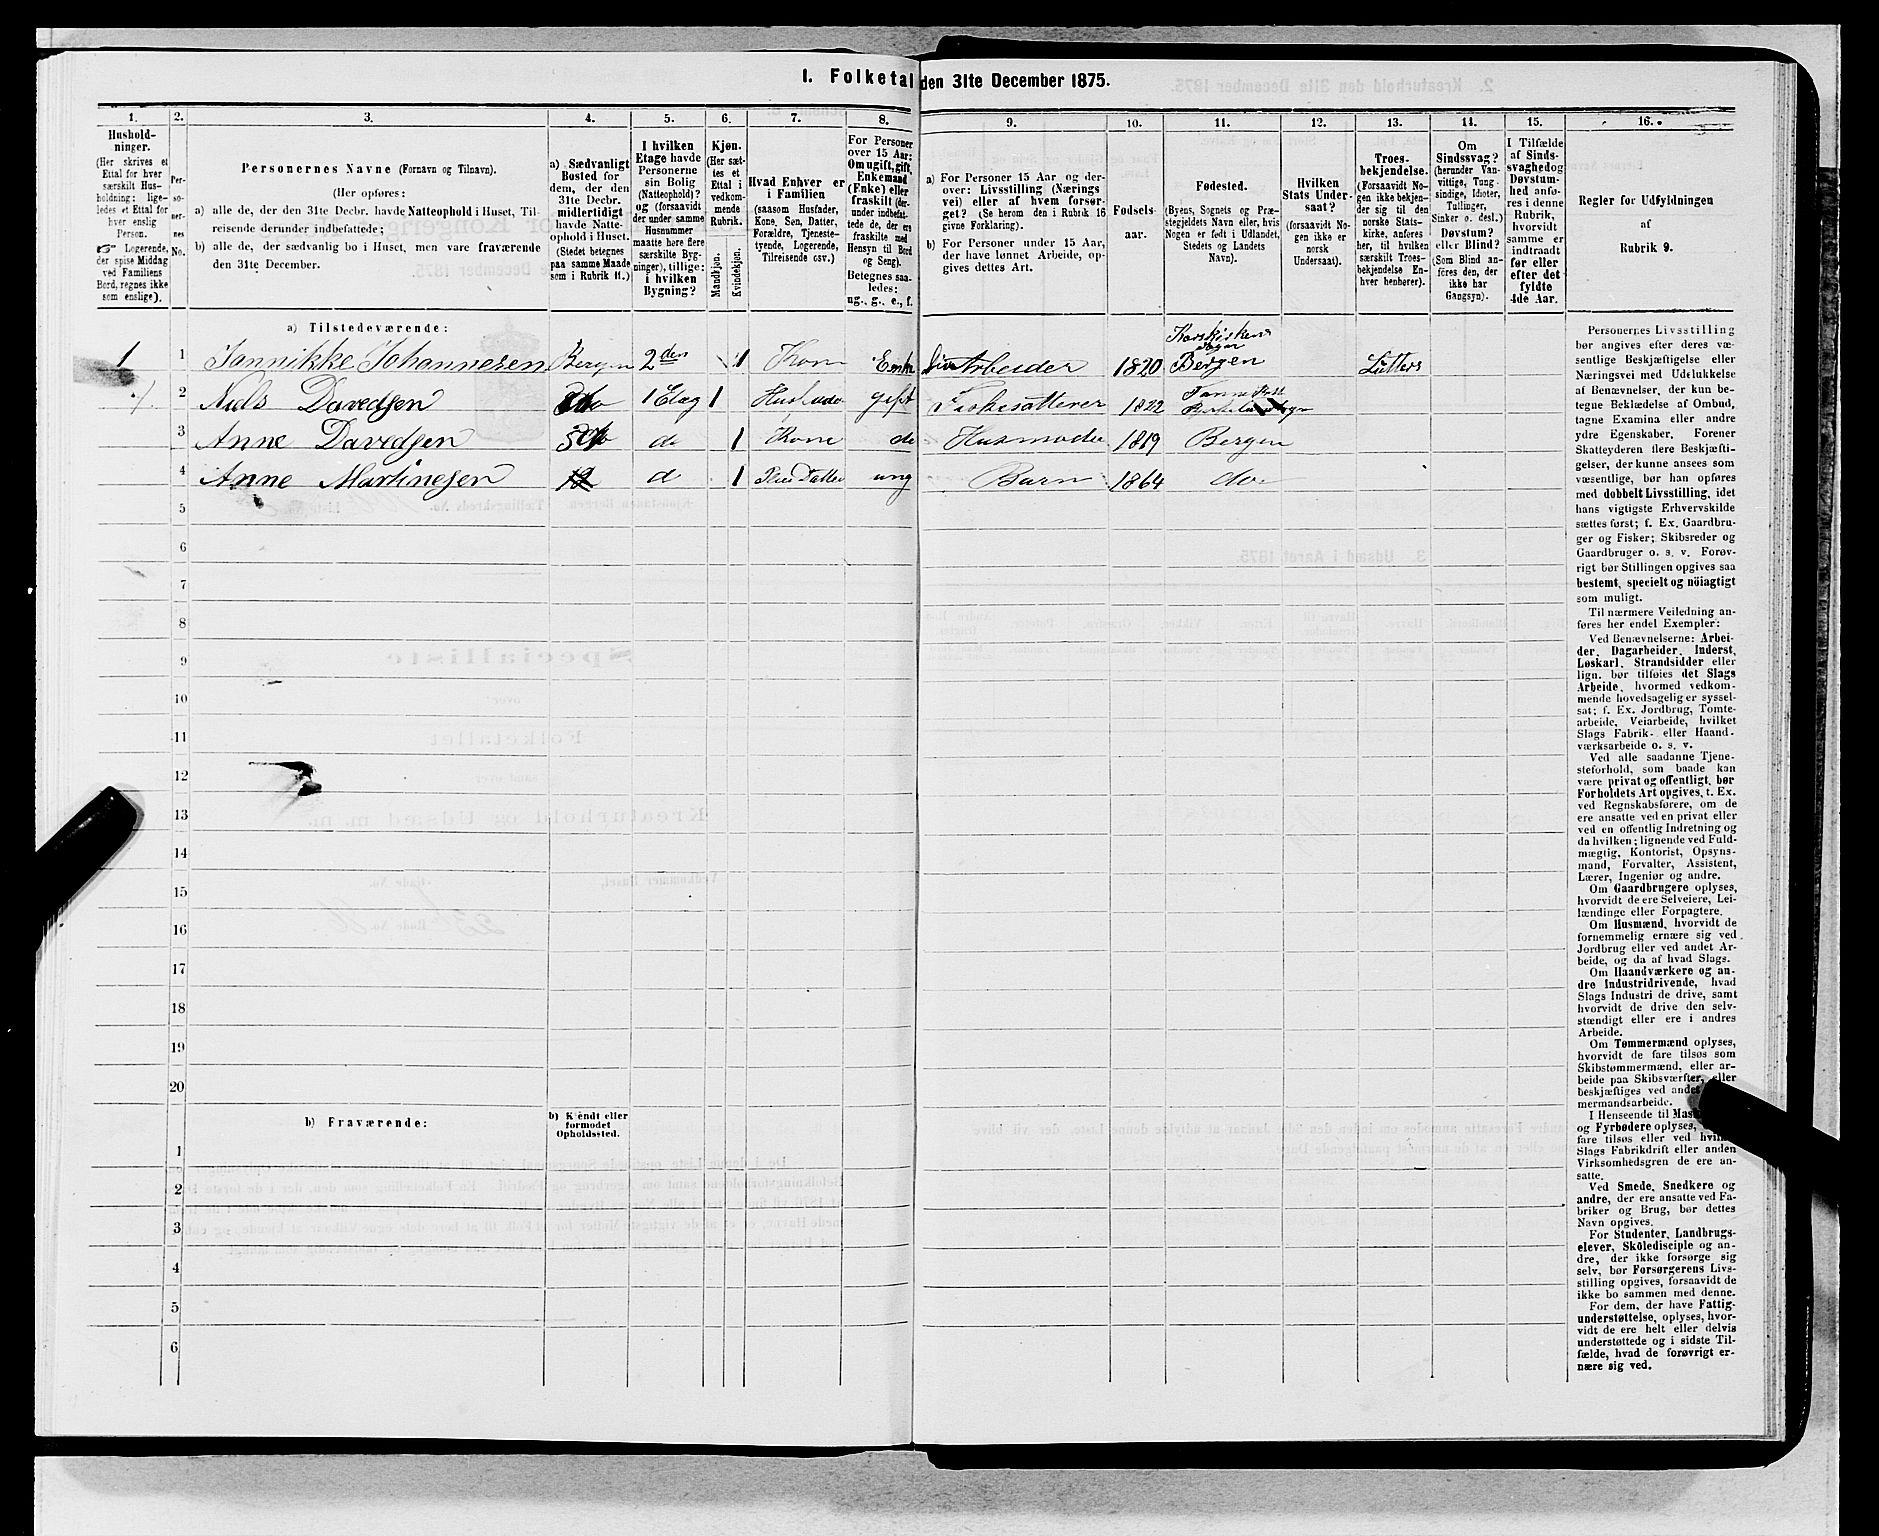 1. Folketal den 31te December 1875.
1.
Hushold-
ninger.
(Her skrives et
Ettal for hver
særskilt Hus-
holdning; lige-
ledes et Ettal for
hver enslig
Person.
☞ Logerende,
der spise Middag
ved Familiens
Bord, regnes ikke
som enslige).
2.
Per-
so-
ner-
nes
No.
3.
Personernes Navne (Fornavn og Tilnavn).
(Her opføres:
a) alle de, der den 31te Decbr. havde Natteophold i Huset, Til-
reisende derunder indbefattede;
b) alle de, der sædvanlig bo i Huset, men vare fraværende
den 31te December.
4.
a) Sædvanligt
Bosted for
dem, der den
31te Decbr.
midlertidigt
havde Natte-
ophold i Huset.
(Stedet betegnes
paa samme Maade
som i Rubrik 11.)
5.
I hvilken
Etage havde
Personerne
sin Bolig
(Natteophold)?
og (forsaavidt
der under samme
Husnummer
maatte høre flere
særskilte Byg-
ninger), tillige:
i hvilken
Bygning?
6.
Kjøn.
(Her sæt-
tes et
Ettal i
vedkom-
mende
Rubrik.
Mandkjøn.
Kvindekjøn.
7.
Hvad Enhver er
i Familien
(saasom Husfader,
Kone, Søn, Datter,
Forældre, Tjeneste-
tyende, Logerende,
Tilreisende osv.)
8.
For Personer
over 15 Aar:
Om ugift, gift,
Enkemand
(Enke) eller
fraskilt (der-
under indbefat-
tede de, der ere
fraskilte med
Hensyn til Bord
og Seng).
Betegnes saa-
ledes:
ug., g., e., f.
9.
a) For Personer 15 Aar og der-
over: Livsstilling (Nærings
vei) eller af hvem forsør-
get? (Se herom den i Rubrik 16
givne Forklaring).
b) For Personer under 15 Aar,
der have lønnet Arbeide, op-
gives dettes Art.
10.
Fødsels-
aar.
11.
Fødested.
(Byens, Sognets og Præ-
stegjeldets Navn eller, hvis
Nogen er født i Udlandet,
Stedets og Landets
Navn).
12.
Hvilken
Stats Under-
saat?
(forsaavidt No-
gen ikke er
norsk
Undersaat).
13.
Troes-
bekjendelse.
(Forsaavidt No-
gen ikke bekjen-
der sig til den
norske Stats-
kirke, anføres
her, til hvilken
særskilt Troes-
bekjendelse En-
hver henhører).
14.
Om
Sindssvag?
(herunder Van-
vittige, Tung-
sindige, Idioter,
Tullinger,
Sinker o. desl.)
Døvstum?
eller Blind?
(Som Blind an-
føres den, der
ikke har
Gangsyn).
15.
I Tilfælde
af Sinds-
svaghed og
Døvstum-
hed anfø-
res i denne
Rubrik,
hvorvidt
samme er
indtraadt
før eller
efter det
fyldte
4de Aar.
16.
Regler for Udfyldningen
af
Rubrik 9.
a) Tilstedeværende:
1 1 Jannikke Johannesen Bergen 2den 1 Kone Enke Arbeider 1820 Bergen Lutters
2 Niels Davedsen 1 Etag 1 gift 1822
3 Anne Davidsen d 1 Kone do 1819 Bergen
4 Anne Martinesen d 1 ung Barn 1864 do
5
6
7
8
9
10
11
12
13
14
15
16
17
18
19
20
b) Fraværende:
b) Kjendt eller
formodet
Opholdssted.
1
2
3
4
5
6
Personernes Livsstilling
bør angives efter deres væ-
sentlige Beskjæftigelse eller
Næringsvei med Udelukkelse
af Benævnelser, der kun be-
tegne Beklædelse af Ombud,
tagne Examina eller andre
ydre Egenskaber. Forener
Skatteyderen flere Beskjæfti-
gelser, der kunne ansees som
væsentlige, bør han opføres
med dobbelt Livsstilling, idet
hans vigtigste Erhvervskilde
sættes først; f. Ex. Gaardbru-
ger og Fisker; Skibsreder og
Gaardbruger o. s. v. Forøv-
rigt bør Stillingen opgives saa
bestemt, specielt og nöiagtigt
som muligt.
Til nærmere Veiledning an-
føres her endel Exempler:
Ved Benævnelserne: Arbei-
der, Dagarbeider, Inderst,
Løskarl, Strandsidder eller
lign. bør tilføies det Slags
Arbeide, hvormed vedkom-
mende hovedsagelig er syssel-
sat; f. Ex. Jordbrug, Tomte-
arbeide, Veiarbeide, hvilket
Slags Fabrik- eller Haand-
værksarbeide o. s. v.
Ved alle saadanne Tjene-
steforhold, som baade kan
være privat og offentligt, bør
Forholdets Art opgives, t. Ex.
ved Regnskabsførere, om de
ere ansatte ved en privat eller
ved en offentlig Indretning og
da hvilken; lignende ved Fuld-
mægtig, Kontorist, Opsyns-
mand, Forvalter, Assistent,
Lærer, Ingeniør og andre.
Om Gaardbrugere oplyses,
hvorvidt de ere Selveiere, Lei-
lændinge eller Forpagtere.
Om Husmænd, hvorvidt de
fornemmelig ernære sig ved
Jordbrug eller ved andet Ar-
beide, og da af hvad Slags.
Om Haandværkere og an-
dre Industridrivende, hvad
Slags Industri de drive, samt
hvorvidt de drive den selv-
stændigt eller ere i andres
Arbeide.
Om Tømmermænd oplyses,
hvorvidt de fare tilsøs som
Skibstømmermænd, eller ar-
beide paa Skibsværfter, eller
beskjæftiges ved
mermandsarbeide.
I Henseende til
og Fyrbødere oplyses,
fare tilsøs eller ved
Slags Fabrikdrift eller anden
Virksomhedsgren de ere an-
satte.
Ved Smede, Snedkere og
andre, der ere ansatte ved Fa-
briker og Brug, bør dettes
Navn opgives.
For Studenter, Landbrugs-
elever, Skôledisciple og an-
dre, der ikke forsørge sig
selv, bør Forsørgerens Livs-
stilling opgives, forsaavidt de
ikke bo sammen med denne.
For dem, der have Fattig-
understøttelse, oplyses, hvor-
vidt de ere helt eller delvis
understøttede og i sidste Til-
fælde, hvad de forøvrigt er-
nære sig ved.